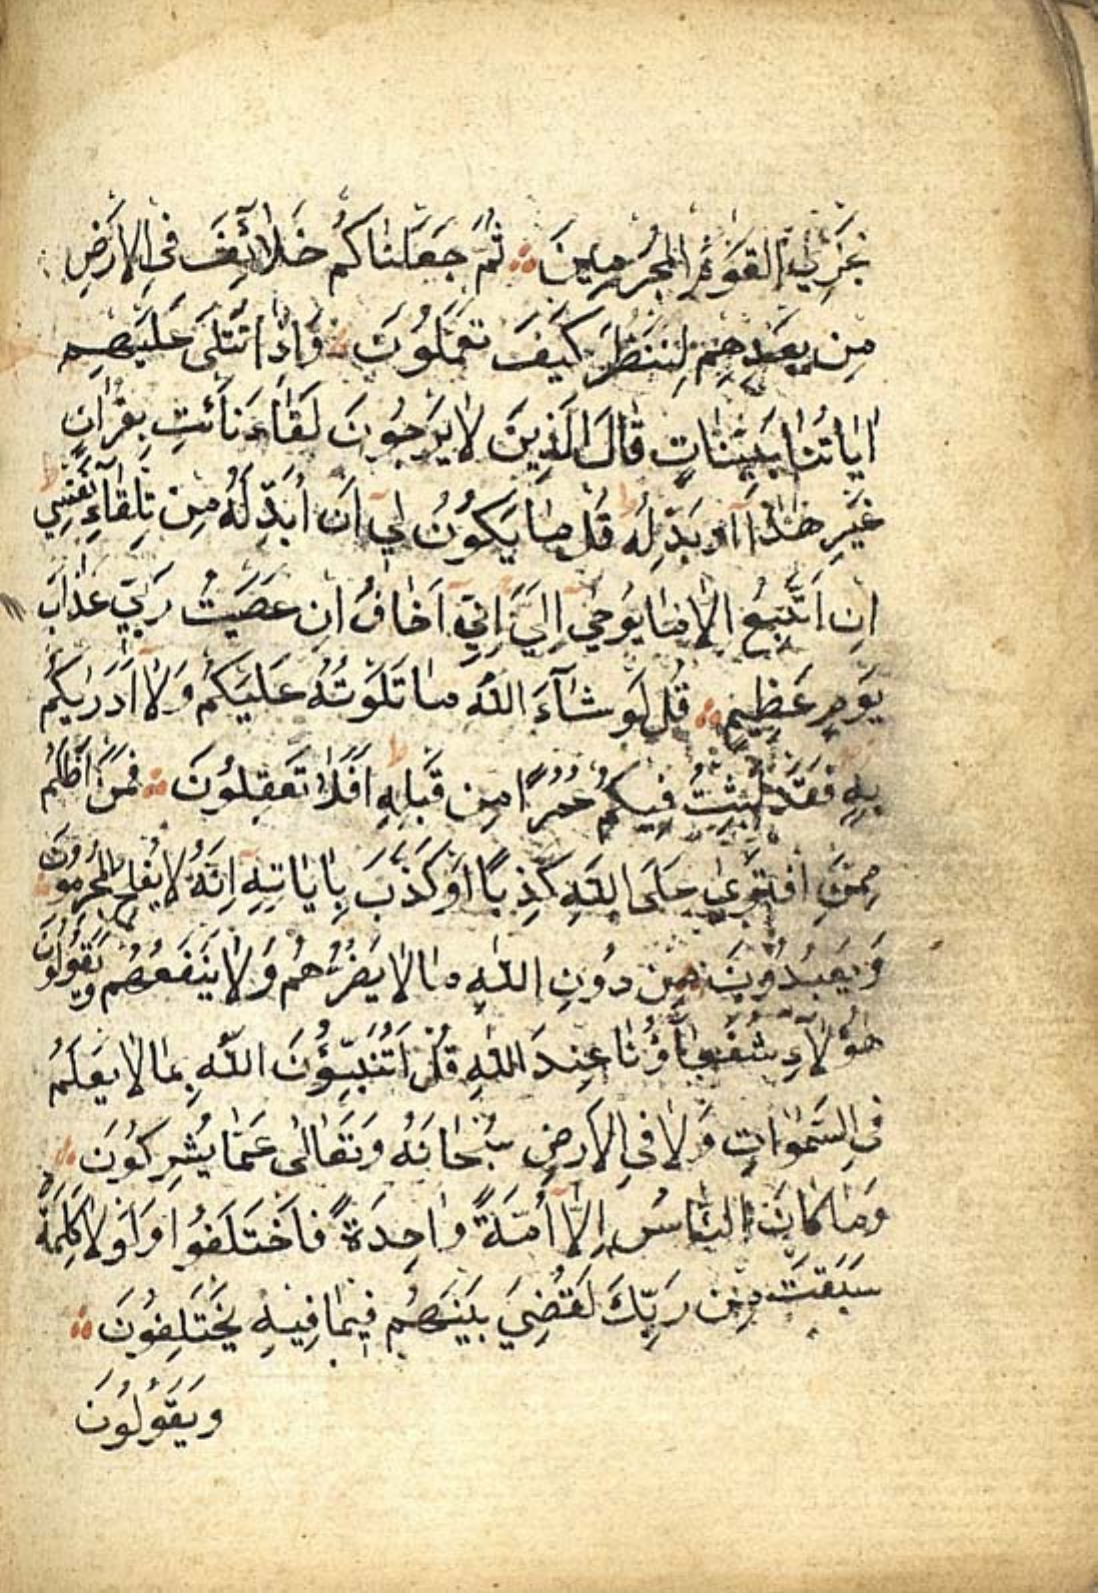 نَجْزِي الْقَوْمَ الْمُجْرِمِينَ ثُمَّ جَعَلْنَاكُمْ خَلَائِفَ فِي الْاَرْضِ
مِنْ بَعْدِهِمْ لِنَنْظُرَ كَيْفَ تَعْمَلُونَ وَاِذَا تُتْلَى عَلَيْهِمْ
اٰيَاتُنَا بَيِّنَاتٍ قَالَ الَّذِينَ لَا يَرْجُونَ لِقَاءَنَا ائْتِ بِقُرْاٰنٍ
غَيْرِ هٰذَا اَوْ بَدِّلْهُ قُلْ مَا يَكُونُ لِي اَنْ اُبَدِّلَهُ مِنْ تِلْقَاءِ نَفْسِي
اِنْ اَتَّبِعُ اِلَّا مَا يُوحٰى اِلَيَّ اِنِّي اَخَافُ اِنْ عَصَيْتُ رَبِّي عَذَابَ
يَوْمٍ عَظِيمٍ قُلْ لَوْ شَآءَ اللّٰهُ مَا تَلَوْتُهُ عَلَيْكُمْ وَلَا اَدْرٰيكُمْ
بِهِ فَقَدْ لَبِثْتُ فِيكُمْ عُمُرًا مِنْ قَبْلِهِ اَفَلَا تَعْقِلُونَ فَمَنْ اَظْلَمُ
مِمَّنِ افْتَرٰى عَلَى اللّٰهِ كَذِبًا اَوْ كَذَّبَ بِاٰيَاتِهِ اِنَّهُ لَا يُفْلِحُ الْمُجْرِمُونَ
وَيَعْبُدُونَ مِنْ دُونِ اللّٰهِ مَا لَا يَضُرُّهُمْ وَلَا يَنْفَعُهُمْ وَيَقُولُونَ
هٰؤُلَآءِ شُفَعَآؤُنَا عِنْدَ اللّٰهِ قُلْ اَتُنَبِّؤُنَ اللّٰهَ بِمَا لَا يَعْلَمُ
فِي السَّمٰوَاتِ وَلَا فِي الْاَرْضِ سُبْحَانَهُ وَتَعَالٰى عَمَّا يُشْرِكُونَ
وَمَا كَانَ النَّاسُ اِلَّا اُمَّةً وَاحِدَةً فَاخْتَلَفُوا وَلَوْلَا كَلِمَةٌ
سَبَقَتْ مِنْ رَبِّكَ لَقُضِيَ بَيْنَهُمْ فِيمَا فِيهِ يَخْتَلِفُونَ
وَيَقُولُونَ